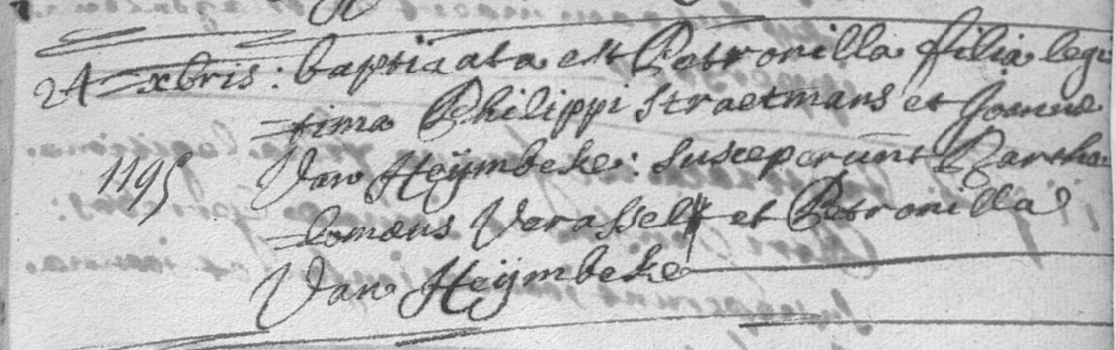 24 xbris: baptizata est Petronilla filia legi
=tima Philippi Straetmans et Joanne
1195 Van Heÿmbeke: susceperunt Bartho
=lomæus Verassel et Petronilla
Van Heÿmbeke